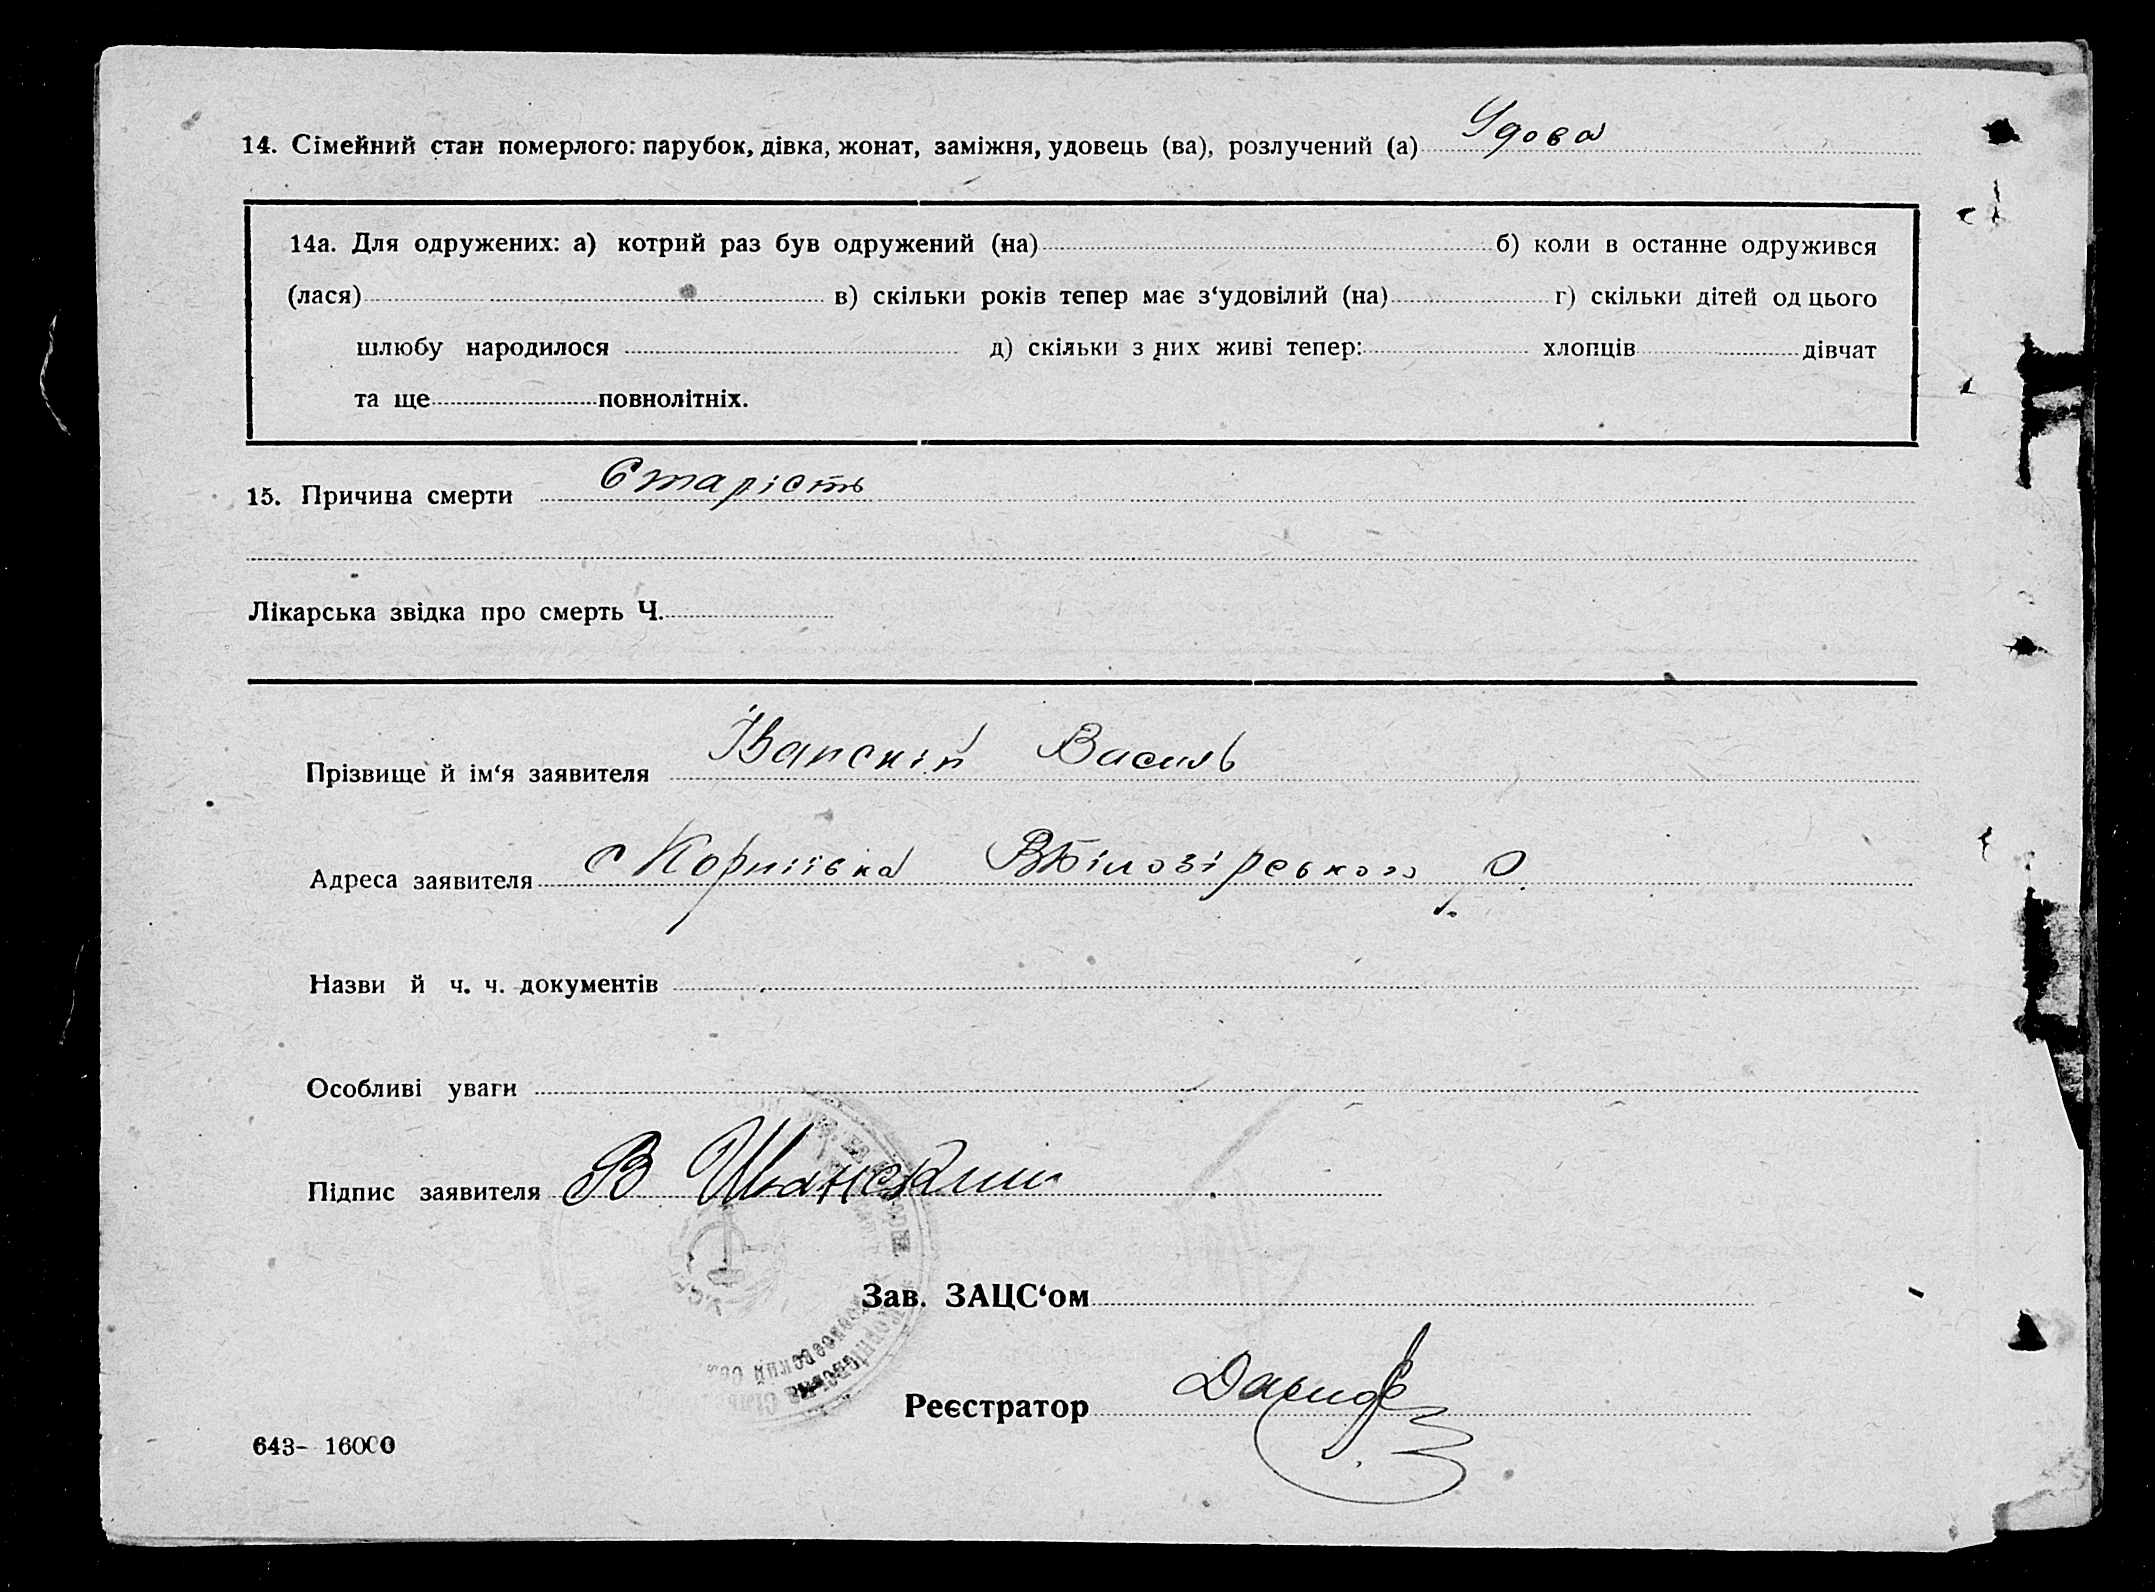 14. Сімейний стан померлого: парубок, дівка, жонат, заміжня, удовець (ва), розлучений (а) Удова
14а. Для одружених: а) котрий раз був одружений (на) б) коли в останне одружився
(лася) в) скільки років тепер має з‘удовілий (на) г) скільки дітей од цього
шлюбу народилося д) скільки з них живі тепер: хлопців дівчат
та ще повнолітніх.
15. Причина смерти Старість
Лікарська звідка про смерть Ч.
Прізвище й ім‘я заявителя Іванскій Василь
Адреса заявителя с Корніівка ВБілозірського р.
Назви й ч. ч. документів
Особливі уваги
Підпис заявителя В Іванский
Зав. ЗАЦС‘ом
Реєстратор
643- 16000